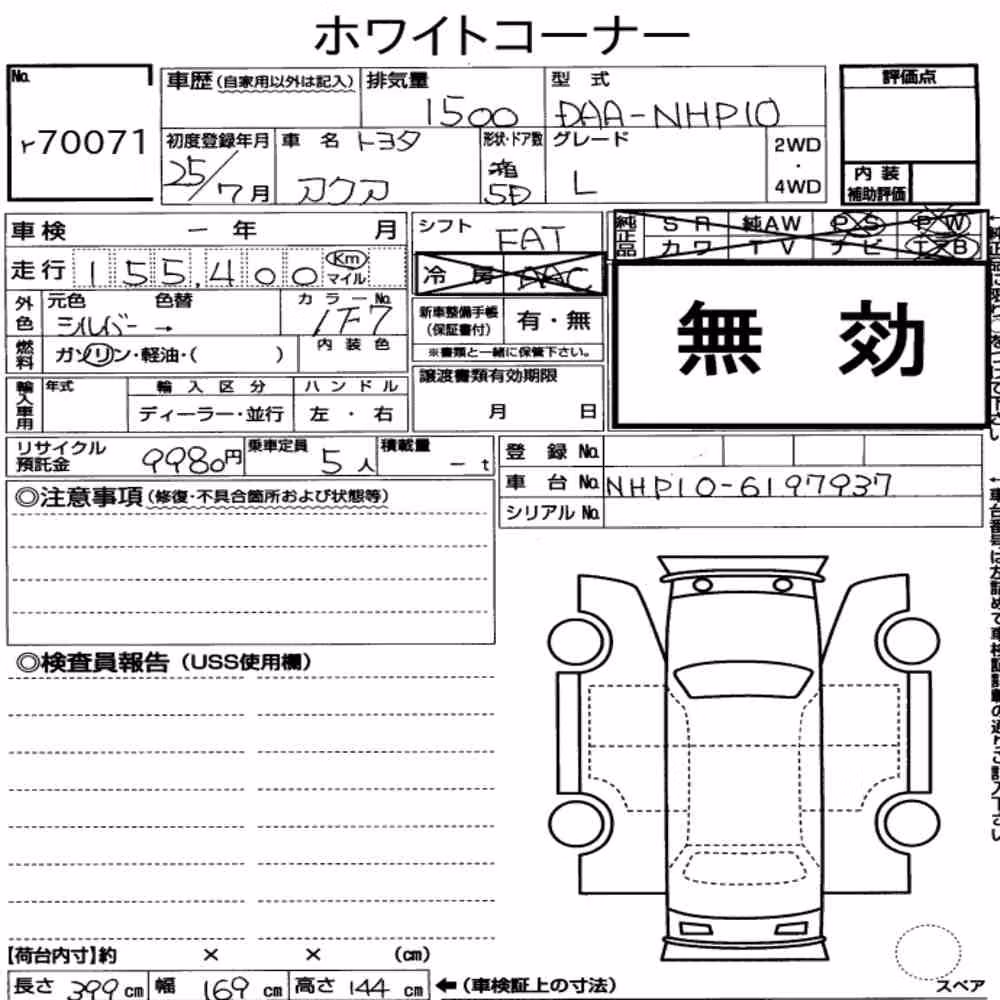 ホワイトコーナー
No. r70071
車歴(自家用以外は記入) 排気量 1500 型式 DAA-NHP10 評価点
初度登録年月 25/7月 車名 トヨタ アクア 形状・ドア数 箱 5D グレード L 2WD・4WD 内装補助評価
車検 － 年 月 シフト FAT 純正品 SR 純AW PS PW
走行 155,400 Km マイル 冷房 AAC カワ TV ナビ エアB
外色 元色 シルバー 色替 → カラーNo. 1F7 新車整備手帳(保証書付) 有・無 無効
燃料 ガソリン・軽油・( ) 内装色 ※書類と一緒に保管下さい。
輸入車用 年式 輸入区分 ディーラー・並行 ハンドル 左・右 譲渡書類有効期限 月 日
リサイクル預託金 9980円 乗車定員 5人 積載量 －t 登録No.
車台No. NHP10-6197937
シリアルNo.
◎注意事項(修復・不具合箇所および状態等)
◎検査員報告(USS使用欄)
【荷台内寸】約 × × (cm)
長さ 399cm 幅 169cm 高さ 144cm ←(車検証上の寸法) スペア